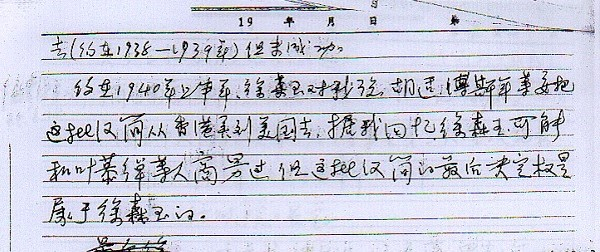 19 年 月 日 第
去(约在1938—1939年)但未成功。
约在1940年上半年,徐森玉对我说,胡适,傅斯年等要把
这批汉简从香港弄到美国去,据我回忆徐森玉可能
和叶恭绰等人商量过,但这批汉简的最后决定权是
属于徐森玉的。